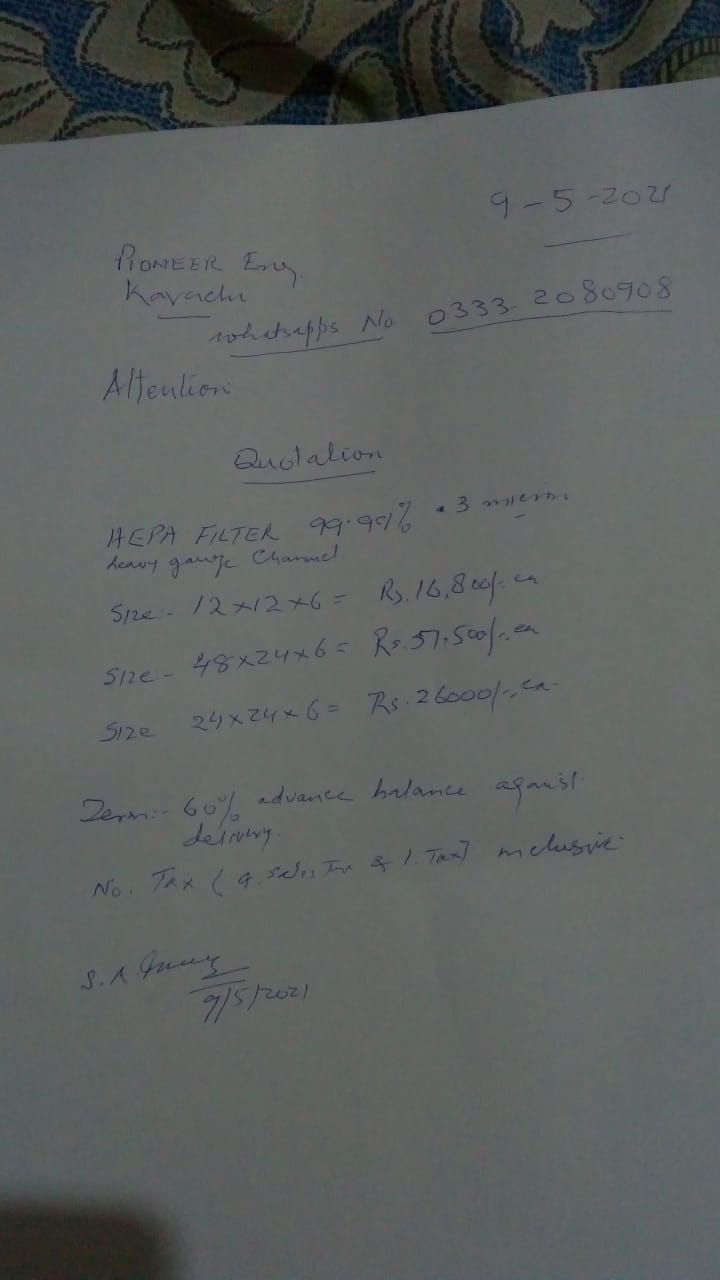 9-5-2021
PIONEER Eng.
Karachi
whatsapps No. 0333-2080908
Attention
Quotation
HEPA FILTER 99.99% .3 micron
heavy gauge Channel.
Size:- 12x12x6 = Rs. 16,800/- ea
Size - 48x24x6 = Rs. 57,500/- ea
Size 24x24x6 = Rs. 26000/- ea.
Term:- 60% advance balance against
delivery.
No. Tax ( G. Sales Tax & I. Tax) inclusive
S. A.
9/5/2021